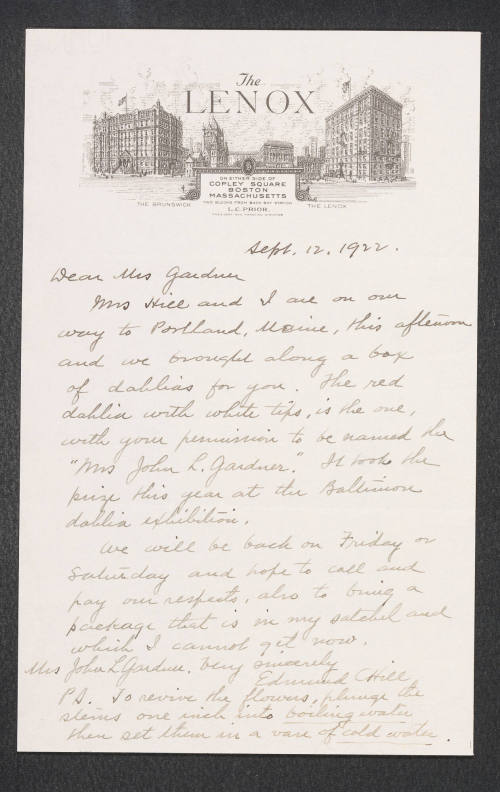 The
LENOX
ON EITHER SIDE OF
COPLEY SQUARE
BOSTON
MASSACHUSETTS
TWO BLOCKS FROM BACK BAY STATION
L.C. PRIOR
PRESIDENT AND MANAGING DIRECTOR
THE BRUNSWICK
THE LENOX
Sept. 12. 1922.
Dear Mrs Gardner
Mrs Hill and I are on our
way to Portland, Maine, this afternoon
and we brought along a box
of dahlias for you. The red
dahlia with white tips, is the one,
with your permission to be named the
"Mrs John L. Gardner." It took the
prize this year at the Baltimore
dahlia exhibition.
We will be back on Friday or
Saturday and hope to call and
pay our respects, also to bring a
package that is in my satchel and
which I cannot get now.
Mrs John L Gardner. Very sincerely
Edmund Hill
P.S. To revive the flowers, plunge the
stems one inch into boiling water
then set them in a vase of cold water.